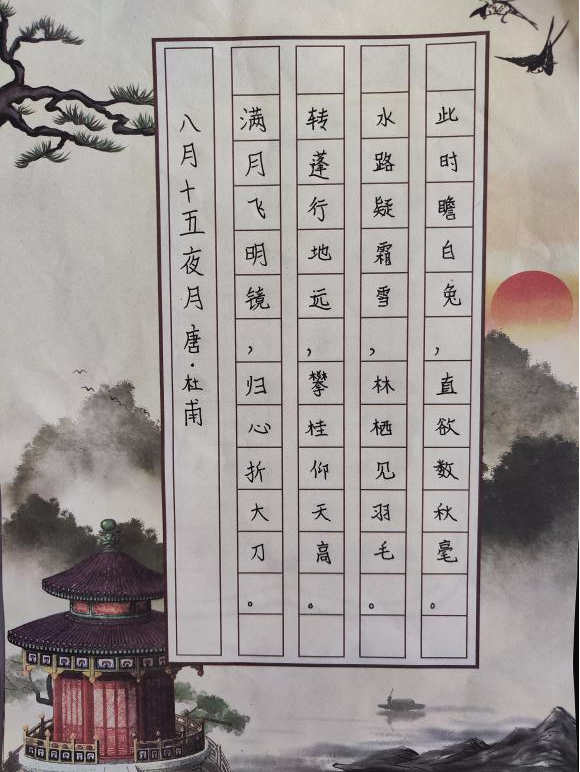 八月十五夜月 唐·杜甫
满月飞明镜，归心折大刀。
转蓬行地远，攀桂仰天高。
水路疑霜雪，林栖见羽毛。
此时瞻白兔，直欲数秋毫。